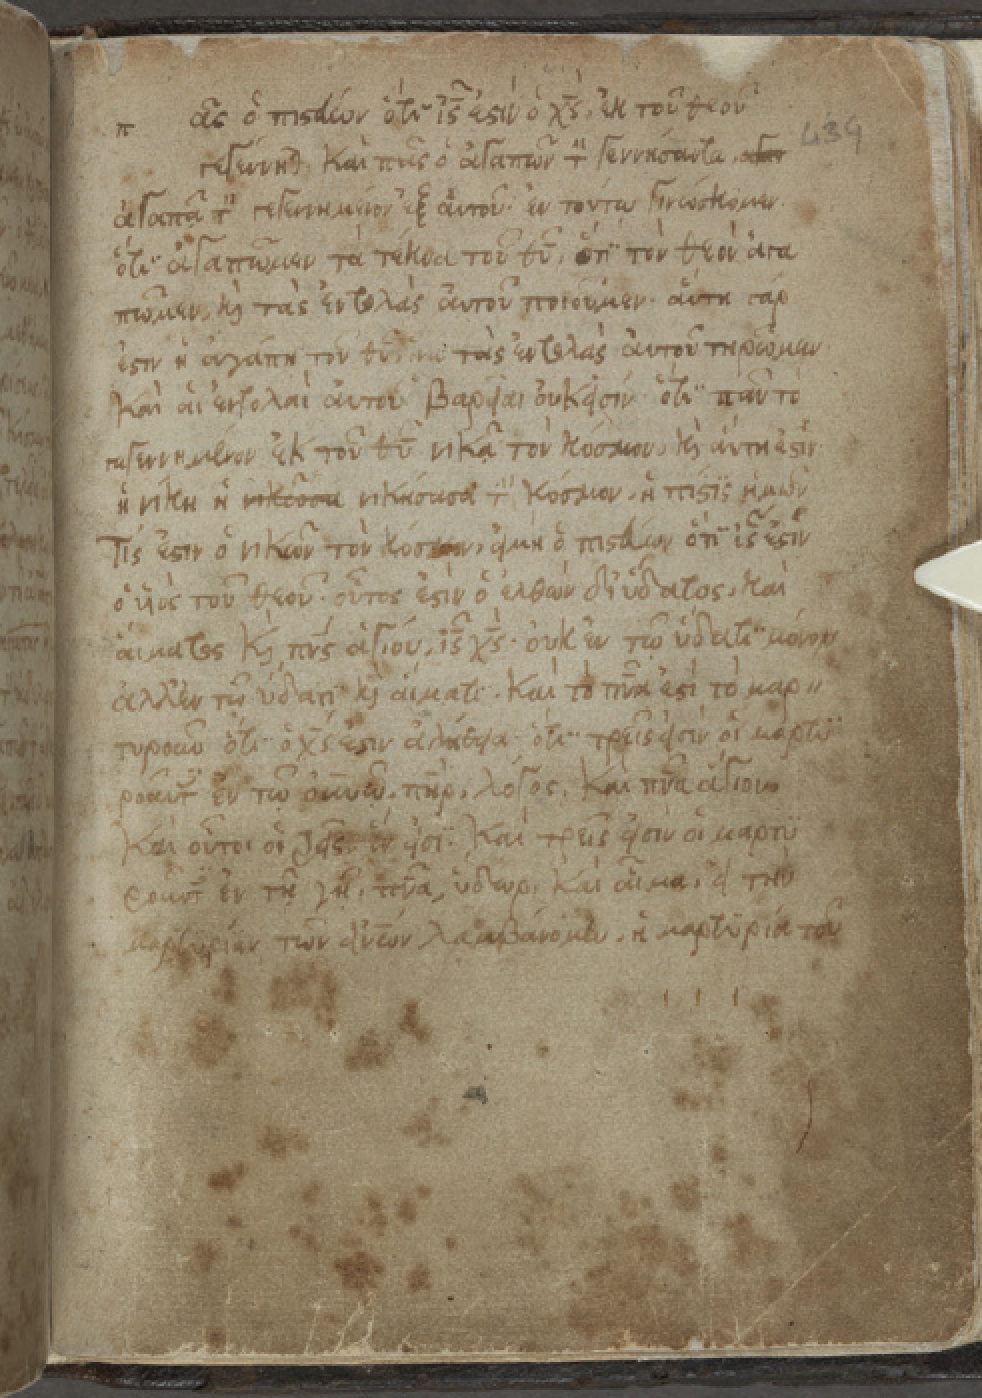 π ᾶς ὁ πιστεύων ὅτι ις̅ ἐστὶν ὁ χς̅, ἐκ τοῦ θεοῦ 439
γεγέννηται καὶ πᾶς ὁ ἀγαπῶν τὸν γεννήσαντα
ἀγαπᾷ τὸν γεγεννημένον ἐξ αὐτοῦ· ἐν τούτω γινώσκομεν
ὅτι ἀγαπῶμεν τὰ τέκνα τοῦ θυ̅, τὸν θεὸν ἀγα
πῶμεν, κ̀ τὰς ἐντολὰς αὐτοῦ ποιοῦμεν· αὕτη γάρ
ἐστιν ἡ ἀγάπη τοῦ θυ̅ τὰς ἐντολὰς αὐτοῦ τηρῶμεν
καὶ αἱ ἐντολαὶ αὐτοῦ βαρεῖαι οὐκ εἰσίν· ὅτι πᾶν τὸ
γεγεννημένον ἐκ τοῦ θυ̅ νικᾷ τὸν κόσμον, κ̀ αὕτη ἐστὶν
ἡ νίκη ἡ νικήσασα τὸν κόσμον, ἡ πίστις ἡμῶν
Τίς ἐστιν ὁ νικῶν τὸν κόσμον, εἰ μὴ ὁ πιστεύων ὅτι ις̅ ἐστὶν
ὁ υἱὸς τοῦ θεοῦ· οὗτός ἐστιν ὁ ἐλθὼν δι' ὕδατος, καὶ
αἵματος κ̀ πνς̅ ἁγίου, ις̅ χς̅· οὐκ ἐν τῶ ὕδατι μόνον
ἀλλ' ἐν τῶ ὕδατι κ̀ αἵματι· καὶ τὸ πνα̅ ἐστὶ τὸ μαρ〃
τυροῦν ὅτι ὁ χς̅ ἐστιν ἀλήθεια· ὅτι τρεῖς εἰσὶν οἱ μαρτυ
ροῦντες ἐν τῶ οὐνῶ, πηρ, λόγος, καὶ πνα̅ ἅγιον,
καὶ οὗτοι οἱ τρεῖς ἕν εἰσι· καὶ τρεῖς εἰσὶν οἱ μαρτυ
ροῦντες ἐν τῇ γῇ, πνα̅, ὕδωρ, καὶ αἷμα, εἰ τὴν
μαρτυρίαν τῶν ἀνων λαμβάνομεν, ἡ μαρτυρία τοῦ